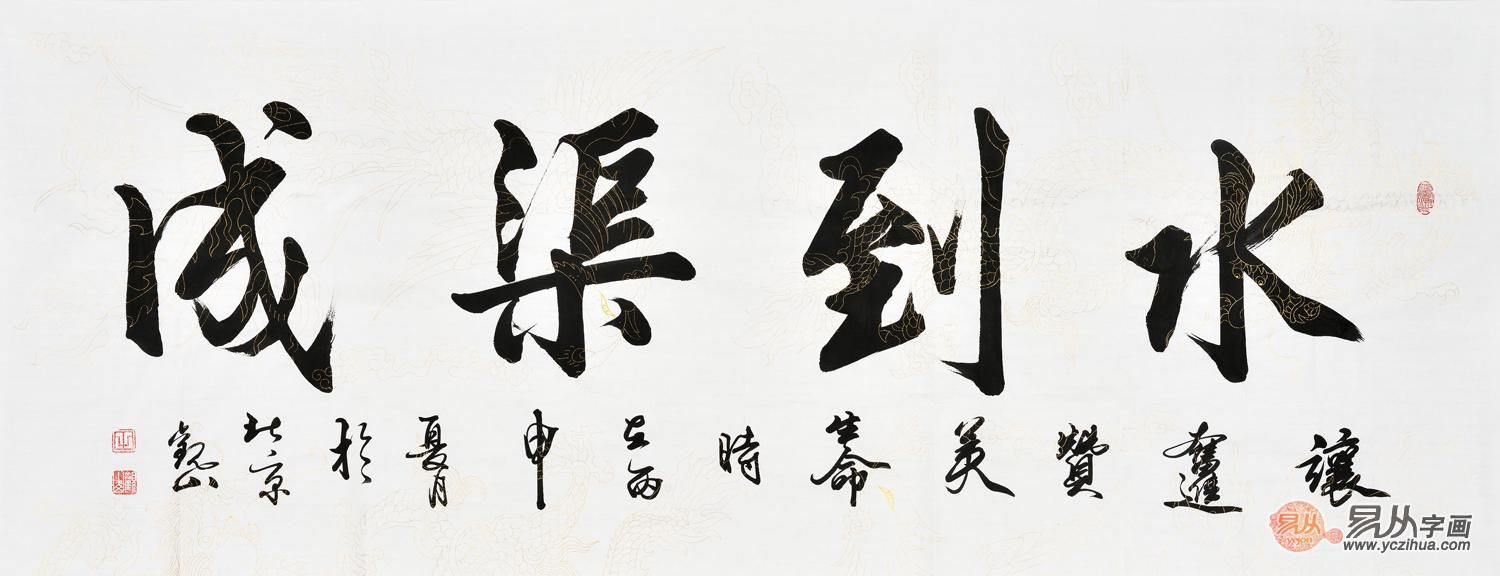 水到渠成
讓奮進贊美生命時在丙申夏月於北京觀山
易从
易从字画
www.yczihua.com